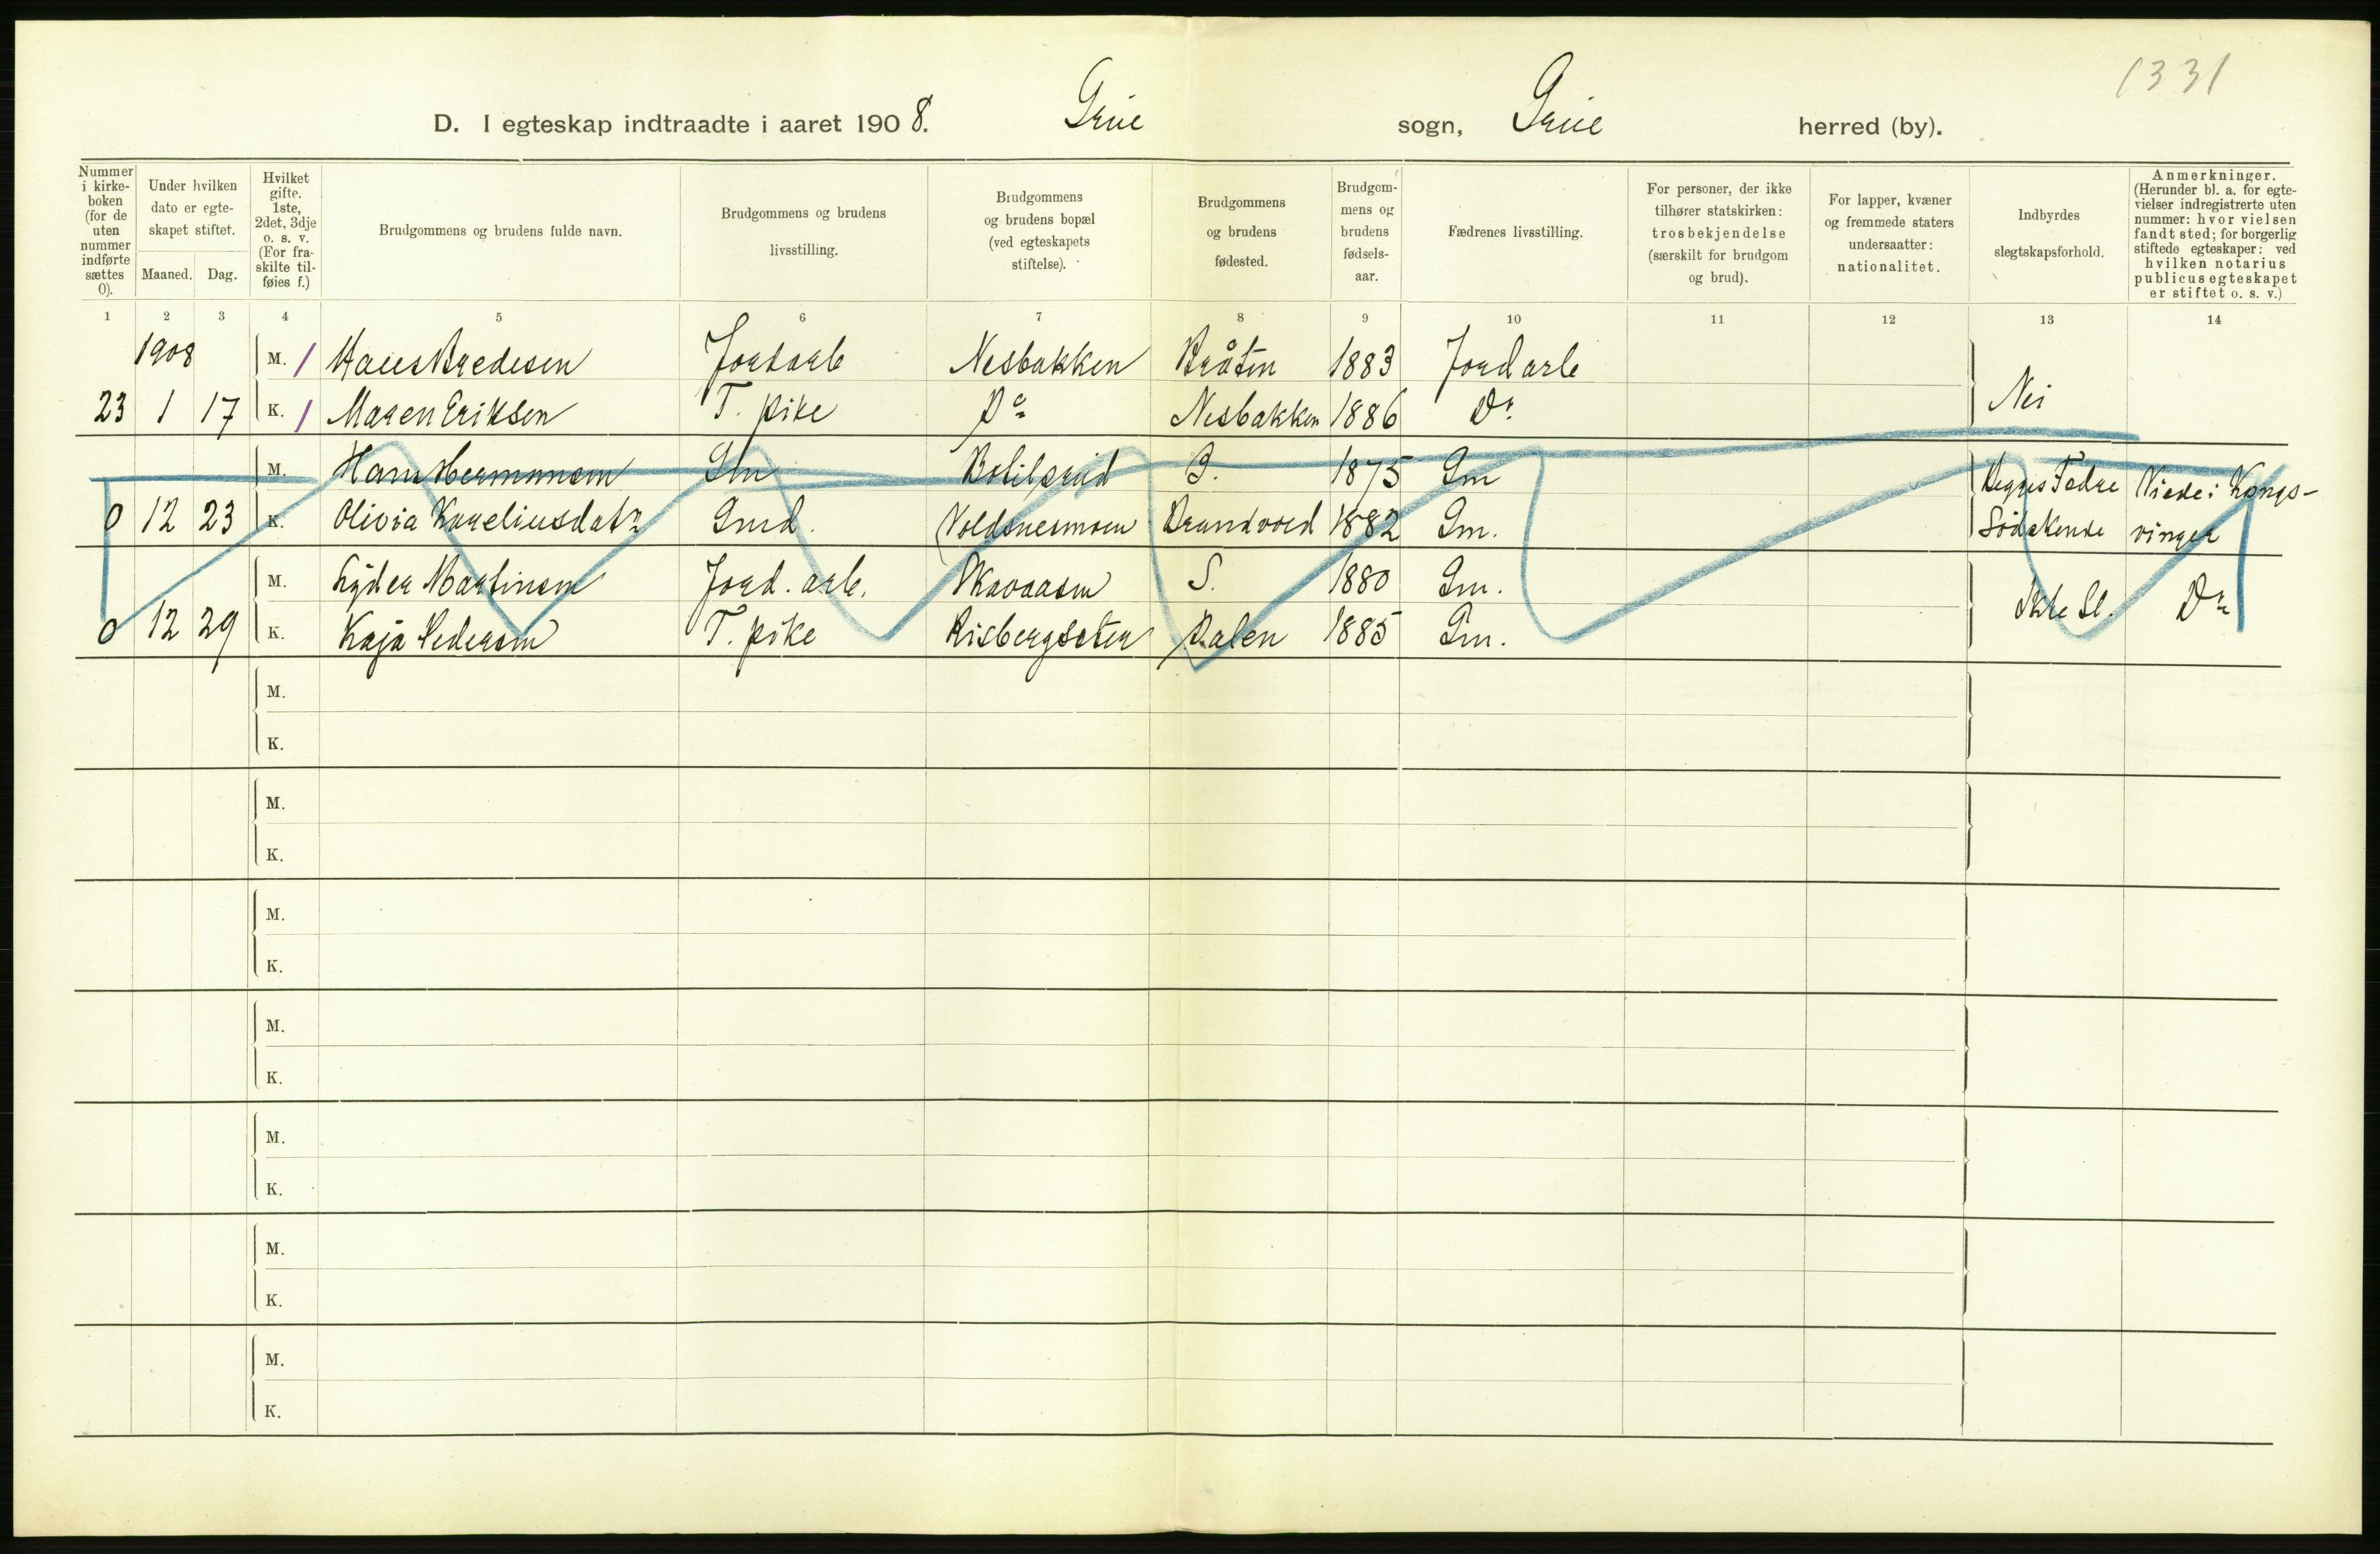 1331
D. I egteskap indtraadte i aaret 1908. Grue sogn, Grue herred (by).
Nummer i kirke-boken (for de uten nummer indførte sættes 0).
Under hvilken dato er egte-skapet stiftet.
Maaned. Dag.
Hvilket gifte. 1ste, 2det, 3dje o. s. v. (For fra-skilte til-føies f.)
Brudgommens og brudens fulde navn.
Brudgommens og brudens livsstilling.
Brudgommens og brudens bopæl (ved egteskapets stiftelse).
Brudgommens og brudens fødested.
Brudgom-mens og brudens fødsels-aar.
Fædrenes livsstilling.
For personer, der ikke tilhører statskirken: trosbekjendelse (særskilt for brudgom og brud).
For lapper, kvæner og fremmede staters undersaatter: nationalitet.
Indbyrdes slegtskapsforhold.
Anmerkninger. (Herunder bl. a. for egte-vielser indregistrerte uten nummer: hvor vielsen fandt sted; for borgerlig stiftede egteskaper: ved hvilken notarius publicus egteskapet er stiftet o. s. v.)
1 2 3 4 5 6 7 8 9 10 11 12 13 14
1908 M. 1 Bredesen Jordarb Nesbakken Bråten 1883 Jordarb
23 1 17 K. 1 Maren Eriksen T. pike Do Nesbakken 1886 Do Nei
M. Hans Hermansen Gm B. 1875 Gm Begges Fedre Viede i Kongs-
0 12 23 K. Olivia Korneliusdatr Gmd. Brandvold 1882 Gm. Södskende vinger
M. Lyder Martinsen Jord. arb. Skavaasen S. 1880 Gm.
0 12 29 K. Kaja Pedersen T. pike Risbergseter Dalen 1885 Gm. Ikke Sl. Do
M.
K.
M.
K.
M.
K.
M.
K.
M.
K.
M.
K.
M.
K.